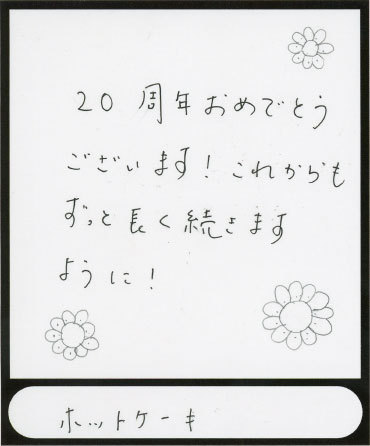 20周年おめでとう
ございます!これからも
ずっと長く続きます
ように!
ホットケーキ